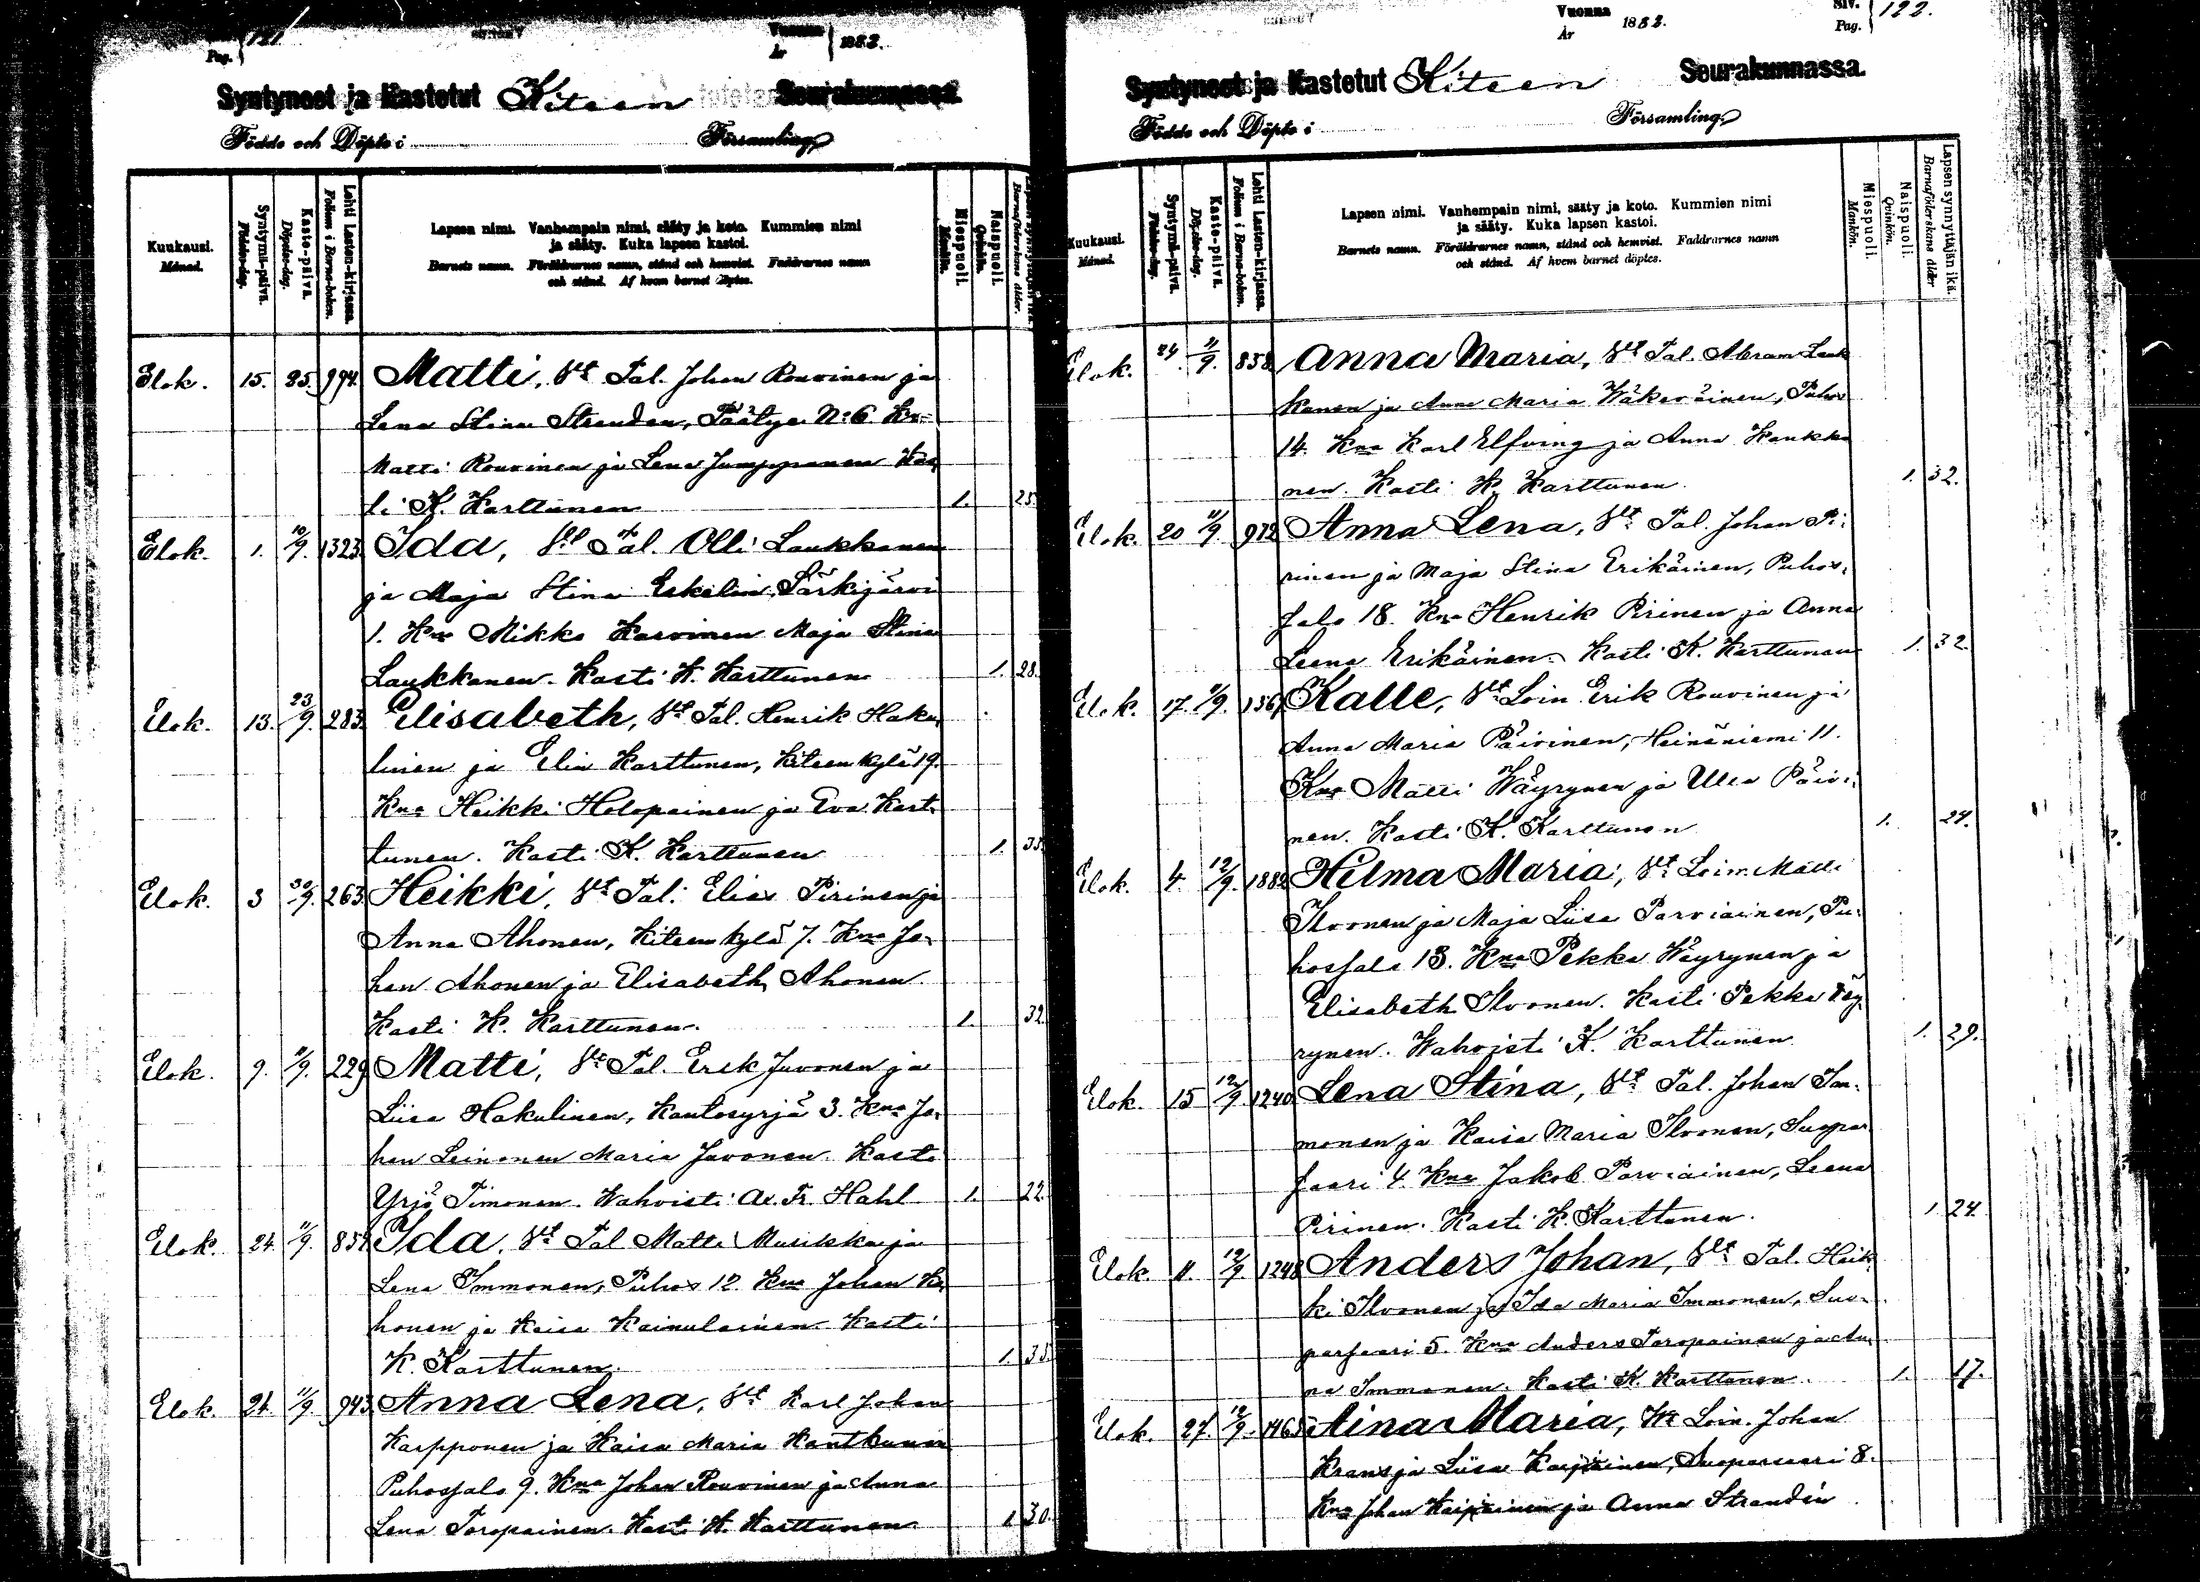 Pag. 121
Vuonna
År 1882.
Syntyneet ja Kastetut Kiteen Seurakunnassa.
Födde och Döpte i Församling.
Kuukausi. Månad.
Syntymä-päivä. Födelse-dag.
Kaste-päivä. Döpelse-dag.
Lehti Lasten-kirjassa. Folium i Barna-boken.
Lapsen nimi. Vanhempain nimi, sääty ja koto. Kummien nimi
ja sääty. Kuka lapsen kastoi.
Barnets namn. Föräldrarnes namn, stånd och hemvist. Faddrarnes namn
och stånd. Af hvem barnet döptes.
Miespuoli. Mankön.
Naispuoli. Qvinkön.
Elok. 15. 25. 994. Matti, Vt Tal. Johan Rouvinen ja
Lena Stina Stranden, Päätye No 6. Kn-
Matti Rouvinen ja Lena Jumppanen Kas
ti K. Karttunen 1. 25.
Elok. 1. 10/9. 1323. Ida, Vt Tal. Olli Laukkanen
ja Maja Stina Eskelin, Särkijärvi
1. Kna Mikko Karvinen Maja Stina
Laukkanen. Kasti K. Karttunen 1. 28.
Elok. 13. 23/9. 283. Elisabeth, Vt Tal. Henrik Haku
linen ja Elin Karttunen, Kiteenkylä 19.
Kna Heikki Holopainen ja Eva Kart-
tunen. Kasti K. Karttunen 1. 33.
Elok. 3 30/9. 263. Heikki, Vt Tal. Elias Pirinen ja
Anna Ahonen, Kiteenkylä 7. Kna Jo-
han Ahonen ja Elisabeth Ahonen
Kasti K. Karttunen. 1. 32.
Elok. 9. 11/9. 229 Matti, Vt Tal. Erik Juvonen ja
Liisa Hakulinen, Kantosyrjä 3. Kna Jo-
han Leinonen Maria Juvonen. Kasti
Yrjö Timonen. Wahvisti Ax. Fr. Hahl 1. 22.
Elok. 24. 11/9. Ida, Vt Tal Matti Musikka ja
Lena Immonen, Puhos 12. Kna Johan Ka
honen ja Kaisa Kainulainen Kasti
K. Karttunen. 1. 33.
Elok. 24. 11/9. 943. Anna Lena, Vt Karl Johan
Karpponen ja Kaisa Maria Kantkunen
Puhossalo 9. Kna Johan Rouvinen ja Anna
Lena Toropainen. Kasti K. Karttunen 1. 30.
Vuonna
År 1882.
Siv.
Pag. 122.
Syntyneet ja Kastetut Kiteen Seurakunnassa.
Födde och Döpte i Församling.
Kuukausi. Månad.
Syntymä-päivä. Födelse-dag.
Kaste-päivä. Döpelse-dag.
Lehti Lasten-kirjassa. Folium i Barna-boken.
Lapsen nimi. Vanhempain nimi, sääty ja koto. Kummien nimi
ja sääty. Kuka lapsen kastoi.
Barnets namn. Föräldrarnes namn, stånd och hemvist. Faddrarnes namn
och stånd. Af hvem barnet döptes.
Miespuoli. Mankön.
Naispuoli. Qvinkön.
Lapsen synnyttäjän ikä. Barnaföderskans ålder
Elok. 24. 11/9. 858. Anna Maria, Vt Tal. Abram Lauk
kanen ja Anna Maria Wäkeväinen, Puhos
14. Kna Karl Elfving ja Anna Kaukko
nen. Kasti K. Karttunen 1. 32.
Elok. 20 11/9. 972 Anna Lena, Vt Tal. Johan Pi-
rinen ja Maja Stina Erikäinen, Puhos-
salo 18. Kna Henrik Pirinen ja Anna
Leena Erikäinen. Kasti K. Karttunen 1. 32.
Elok. 17. 11/9. Kalle, Vt Loin Erik Rouvinen ja
Anna Maria Päivinen, Heinäniemi 11.
Kna Matti Wäyrynen ja Ulla Päivi-
nen. Kasti K. Karttunen 1. 24.
Elok. 4. 12/9. 1882 Hilma Maria, Vt Loin. Matti
Ilvonen ja Maja Liisa Parviainen, Pu-
hossalo 13. Kna Pekka Wäyrynen ja
Elisabeth Ilvonen. Kasti Pekka Väy-
rynen. Wahvisti K. Karttunen 1. 29.
Elok. 15 12/9. 1240. Lena Stina, Vt Tal. Johan Im-
monen ja Kaisa Maria Ilvonen, Suopar
saari 4. Kna Jakob Parviainen, Leena
Pirinen. Kasti K. Karttunen. 1. 24.
Elok. 11. 12/9 1248 Anders Johan, Vt Tal. Heik
ki Ilvonen ja Ida Maria Immonen, Suo-
parsaari 5. Kna Anders Toropainen ja An-
na Immonen. Kasti K. Karttunen. 1. 17.
Elok. 27. 12/9. 1465 Aina Maria, Vt Loin. Johan
Krans ja Liisa Kaipiainen, Suoparsaari 8.
Kna Johan Kaipiainen ja Anna Strandén